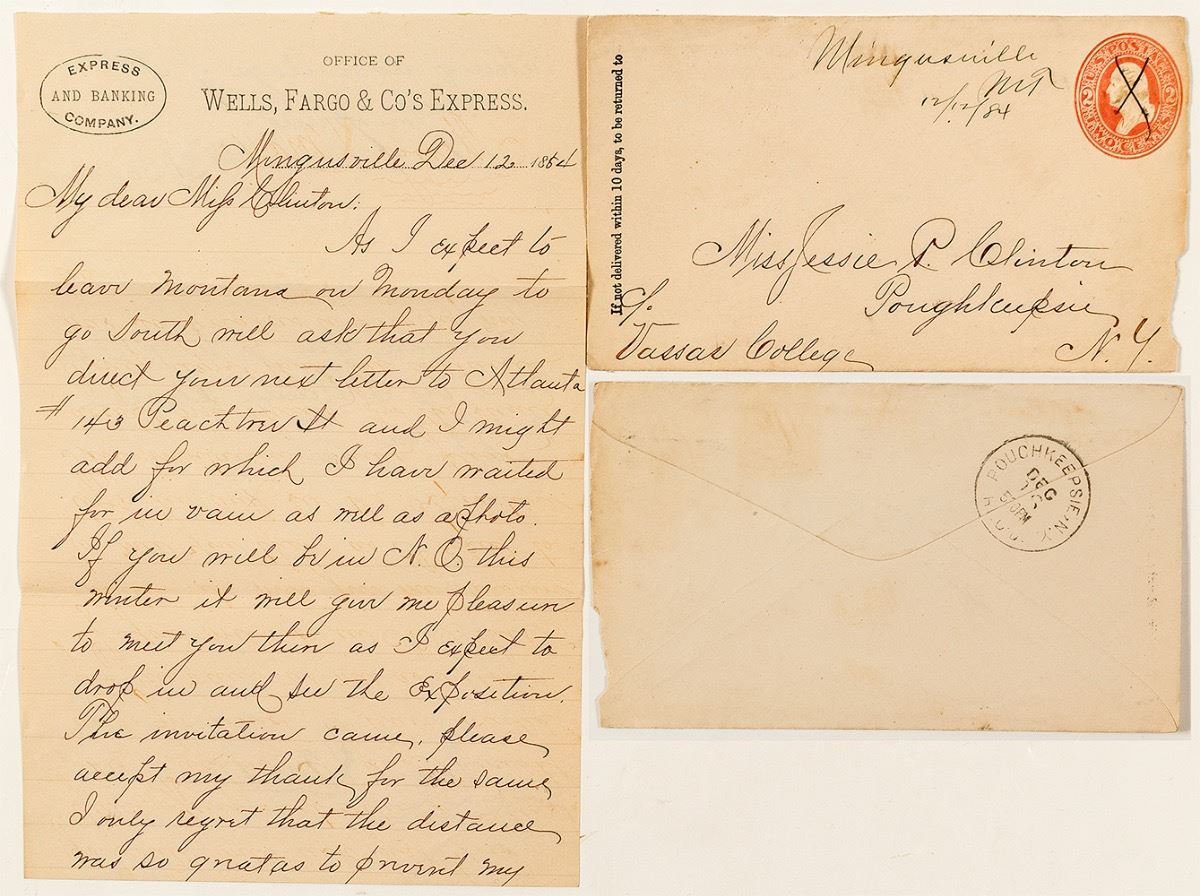 EXPRESS
AND BANKING
COMPANY.
OFFICE OF
WELLS, FARGO & CO'S EXPRESS.
Mingusville Dec 12 1884
My dear Miss Clinton:
As I expect to
leave Montana on Monday to
go South will ask that you
direct your next letter to Atlanta
# 143 Peachtree St and I might
add for which I have waited
for in vain as well as a photo.
If you will be in N.O. this
winter it will give me pleasure
to meet you then as I expect to
drop in and see the Exposition.
The invitation came, please
accept my thanks for the same
I only regret that the distance
was so great as to prevent my
If not delivered within 10 days, to be returned to
Mingusville
MT
12/12/84
U.S. POSTAGE
2 2
TWO CENTS
Miss Jessie P. Clinton
Poughkeepsie
c/o
Vassar College N.Y.
POUGHKEEPSIE, N.Y.
DEC
5 30 PM
REC'D.